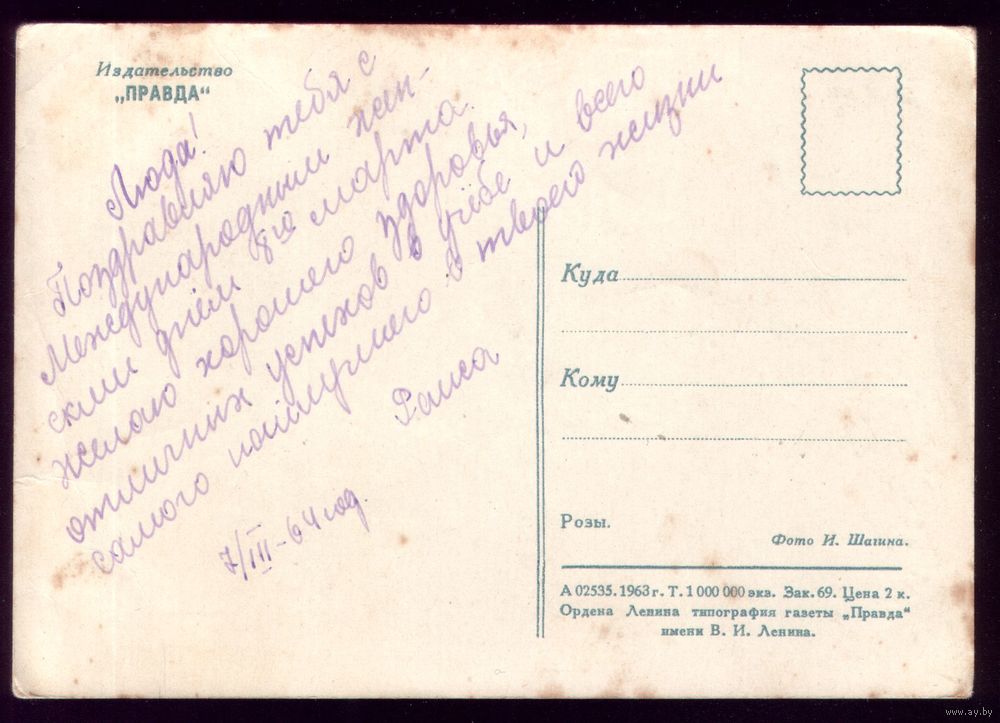 Издательство
„ПРАВДА“
Люда!
Поздравляю тебя с
Международным жен-
ским днём 8го марта.
желаю хорошего здоровья,
отличных успехов в учёбе и всего
самого наилучшего в твоей жизни
Раиса
7/III-64 год.
Куда
Кому
Розы.
Фото И. Шагина.
А 02535. 1963 г. Т. 1 000 000 экз. Зак. 69. Цена 2 к.
Ордена Ленина типография газеты „Правда“
имени В. И. Ленина.
www.ay.by